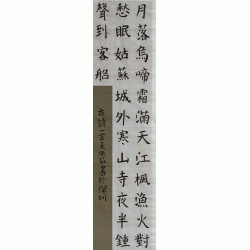 月落烏啼霜滿天江楓漁火對
愁眠姑蘇城外寒山寺夜半鍾
聲到客船
古詩一首
書於深圳